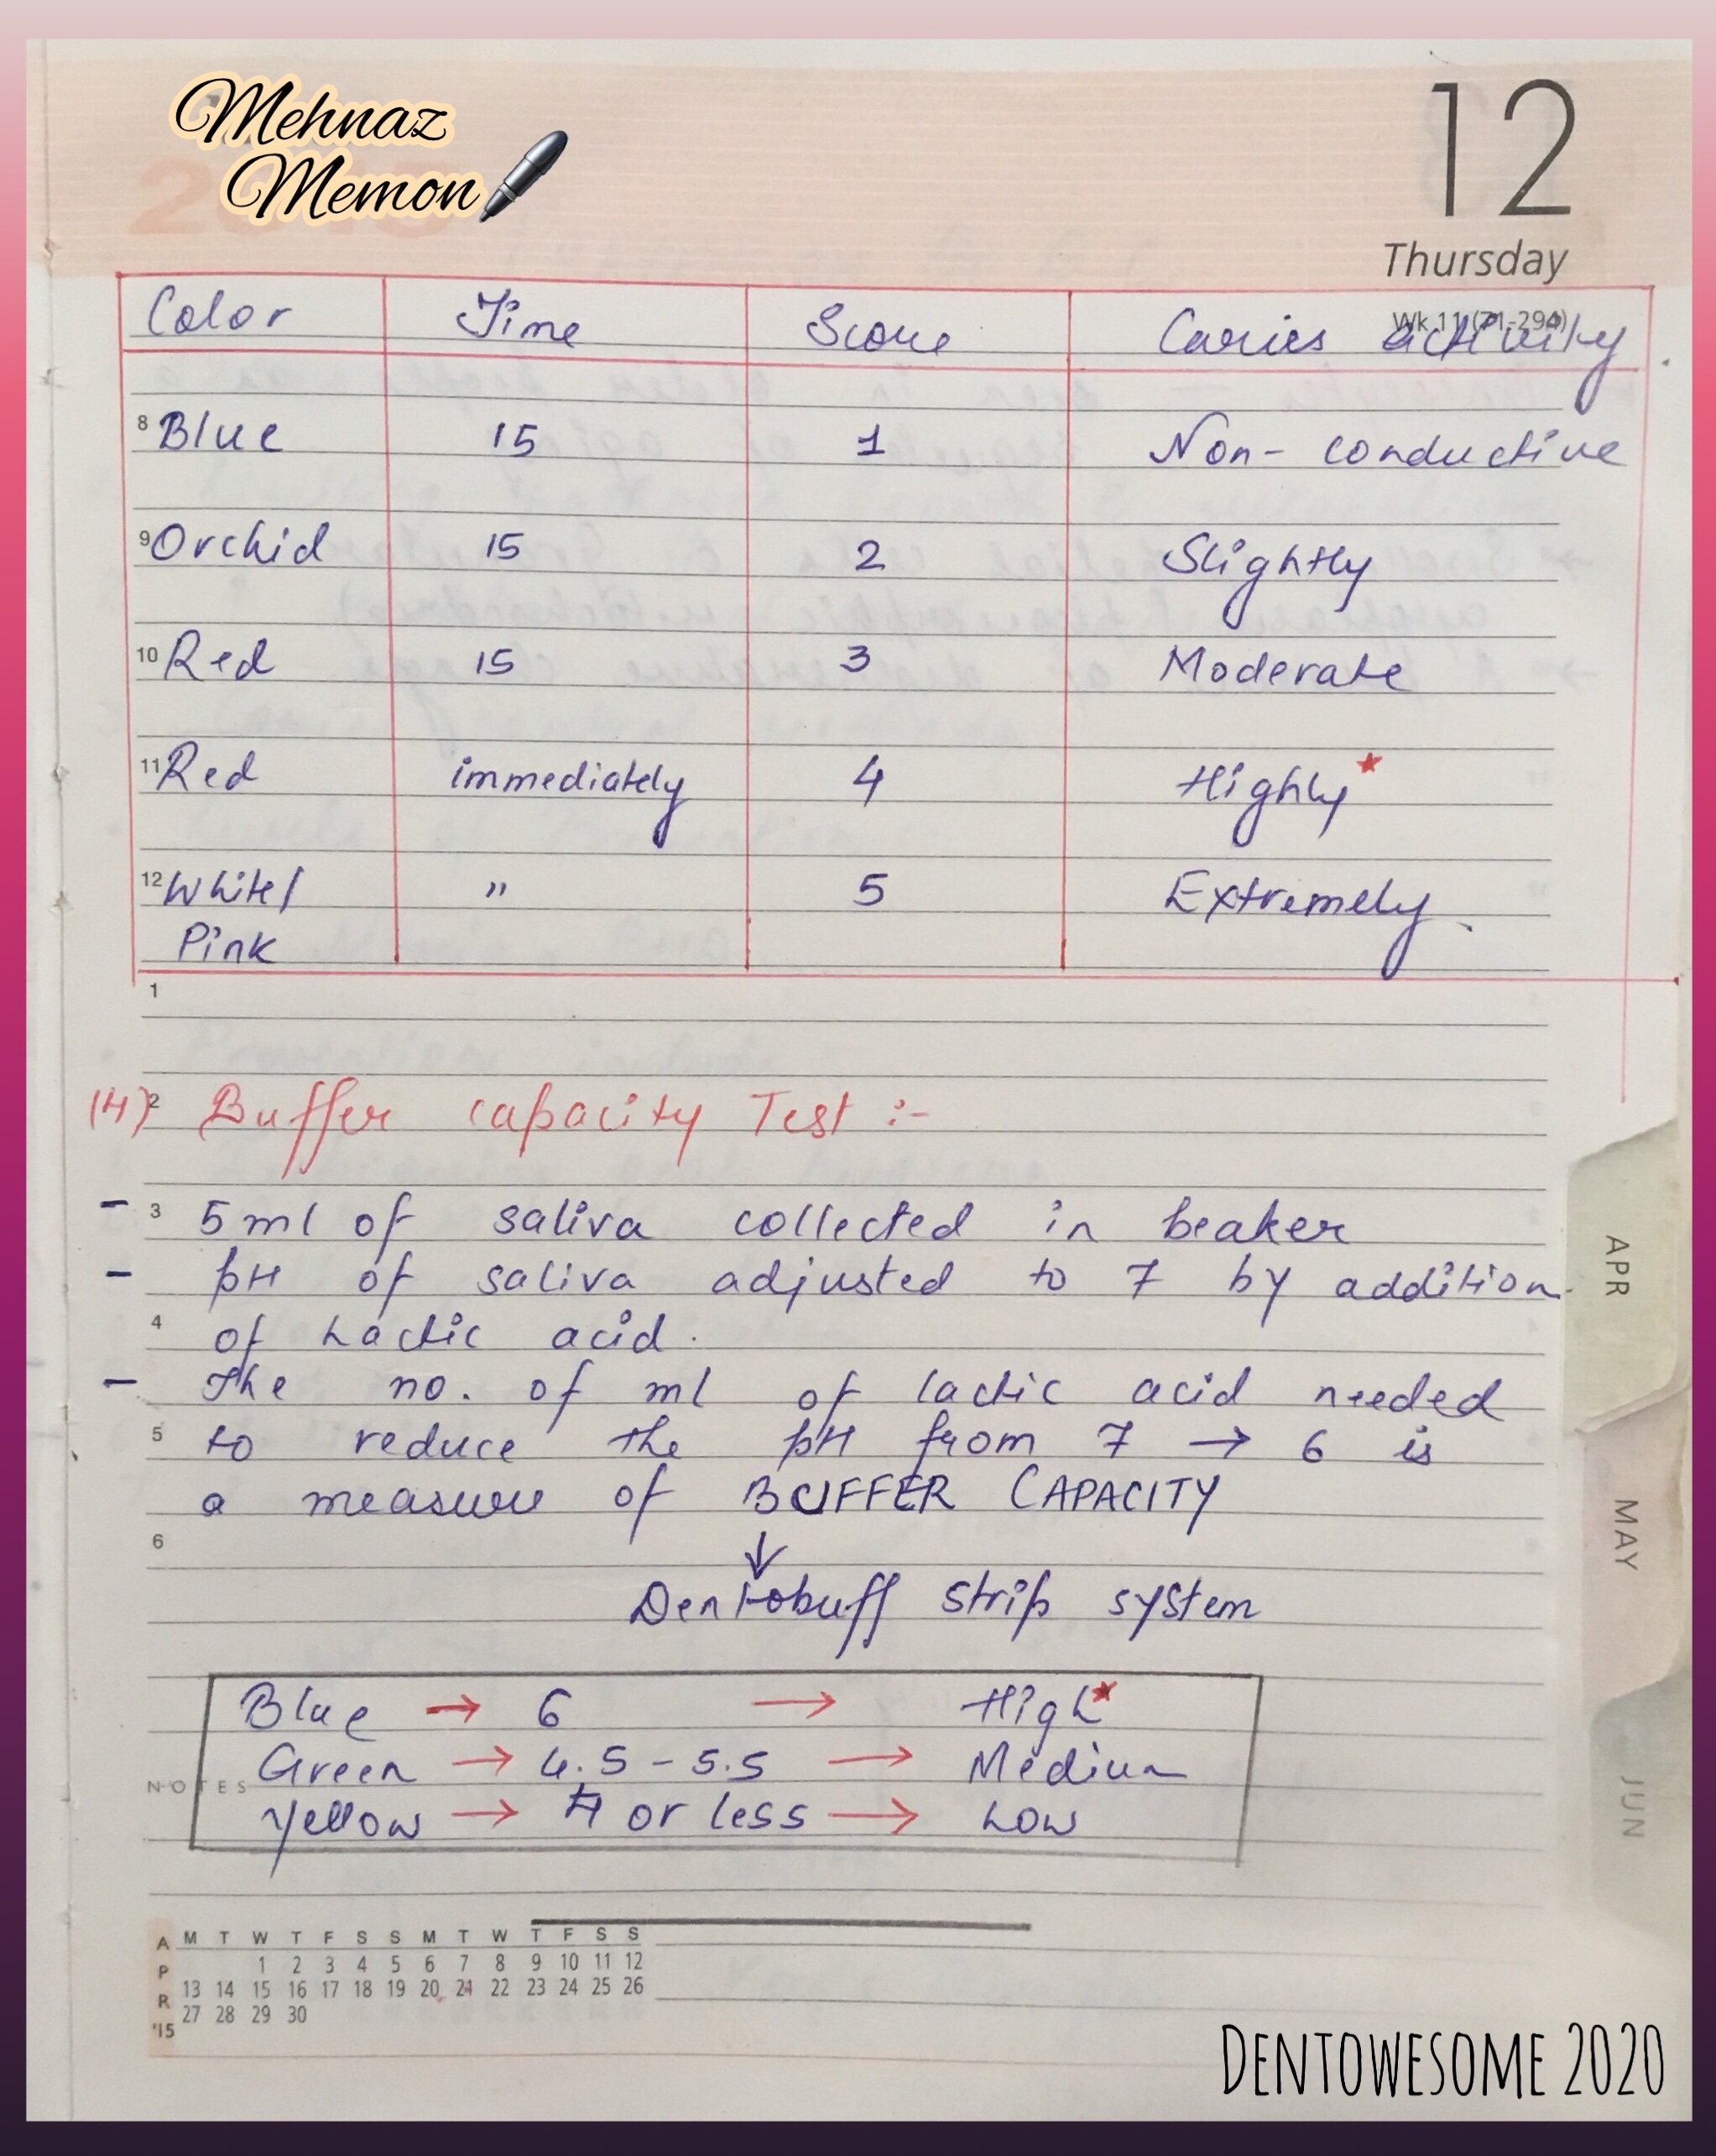 Mehnaz
Memon
12
Thursday
Wk 11 (71-294)
Color Time Score Caries activity
8 Blue 15 1 Non- conductive
9 Orchid 15 2 Slightly
10 Red 15 3 Moderate
11 Red immediately 4 Highly*
12 White/ " 5 Extremely
Pink
1
(4) 2 Buffer capacity Test :-
- 3 5ml of saliva collected in beaker
- pH of saliva adjusted to 7 by addition
4 of Lactic acid.
- The no. of ml of lactic acid needed
5 to reduce the pH from 7 → 6 is
a measure of BUFFER CAPACITY
6
↓
Dentobuff strip system
Blue → 6 → High*
Green → 4.5 - 5.5 → Medium
NOTES
Yellow → 4 or less → Low
APR
MAY
JUN
APR '15
M T W T F S S M T W T F S S
1 2 3 4 5 6 7 8 9 10 11 12
13 14 15 16 17 18 19 20 21 22 23 24 25 26
27 28 29 30
DENTOWESOME 2020